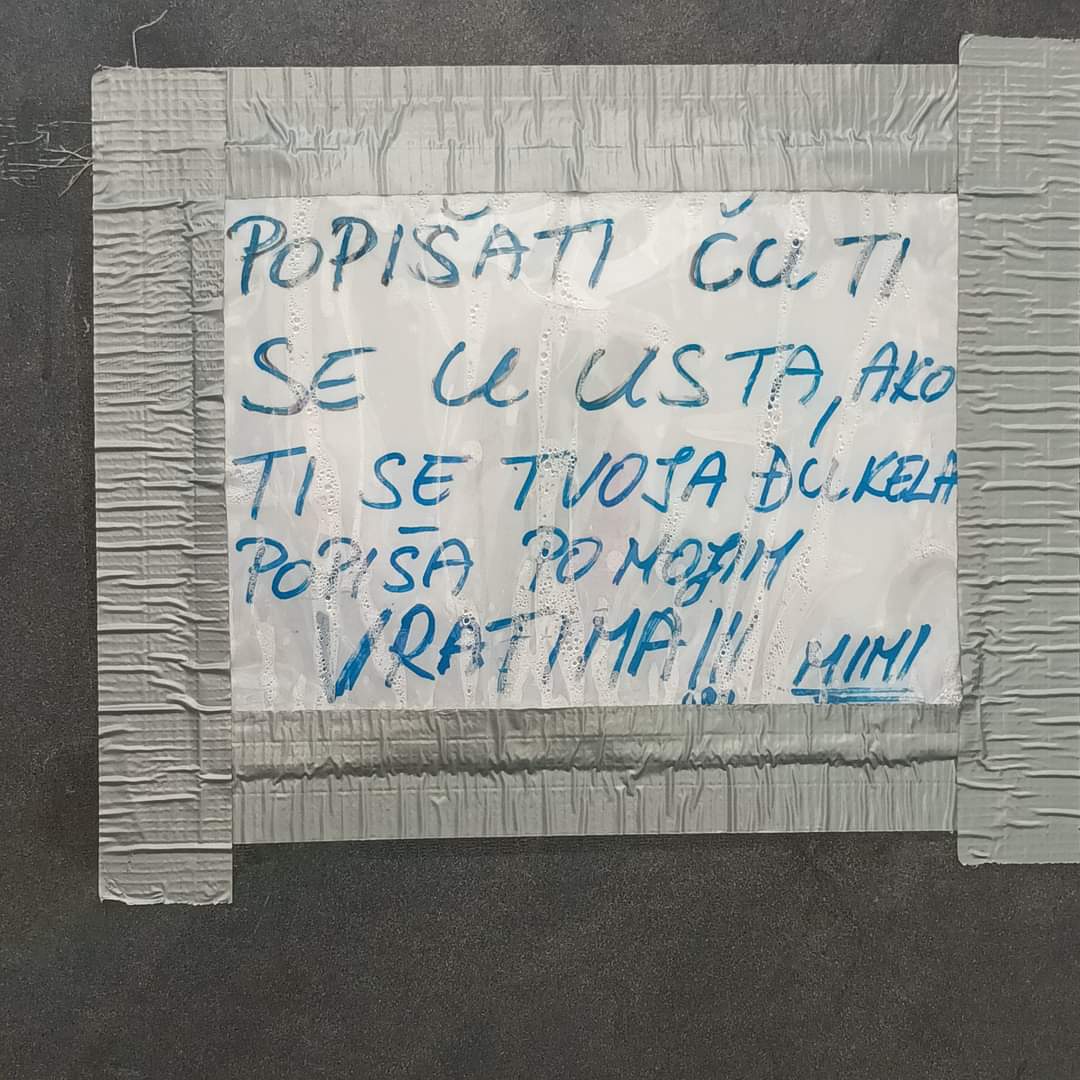 POPIŠATI ĆU TI
SE U USTA, AKO
TI SE TVOJA ĐUKELA
POPIŠA PO MOJIM
VRATIMA!!! MIMI